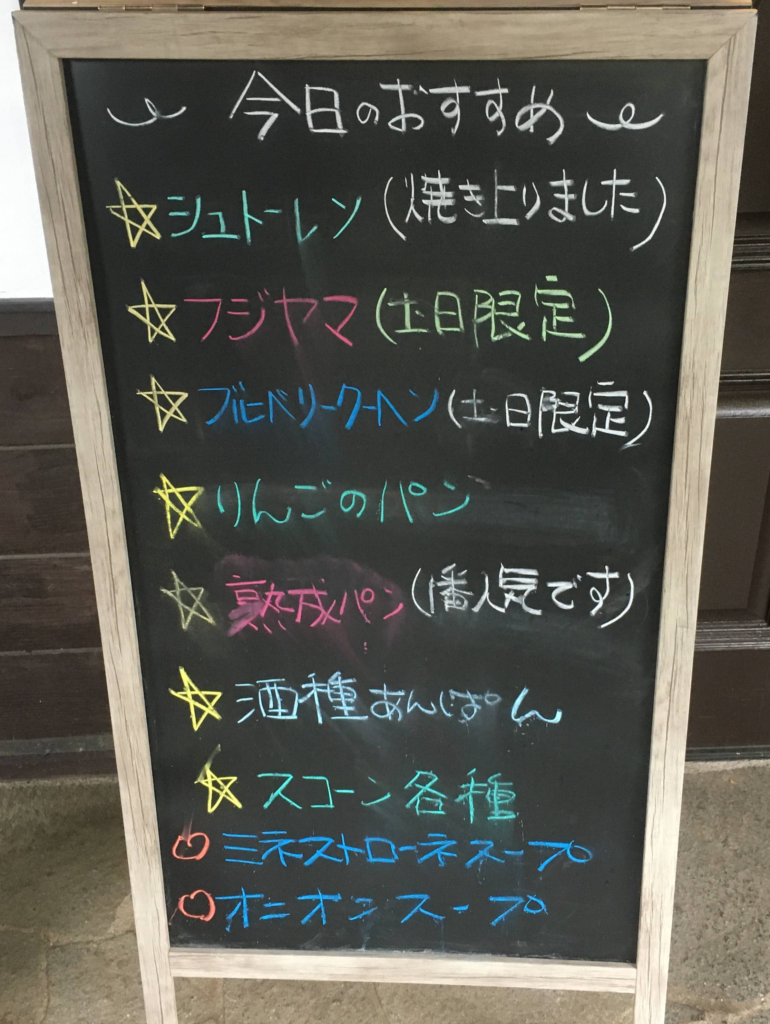 今日のおすすめ
☆シュトーレン(焼き上りました)
☆フジヤマ(土日限定)
☆ブルーベリークーヘン(土日限定)
☆りんごのパン
☆熟成パン(1番人気です)
☆酒種あんぱん
☆スコーン各種
ミネストローネスープ
オニオンスープ